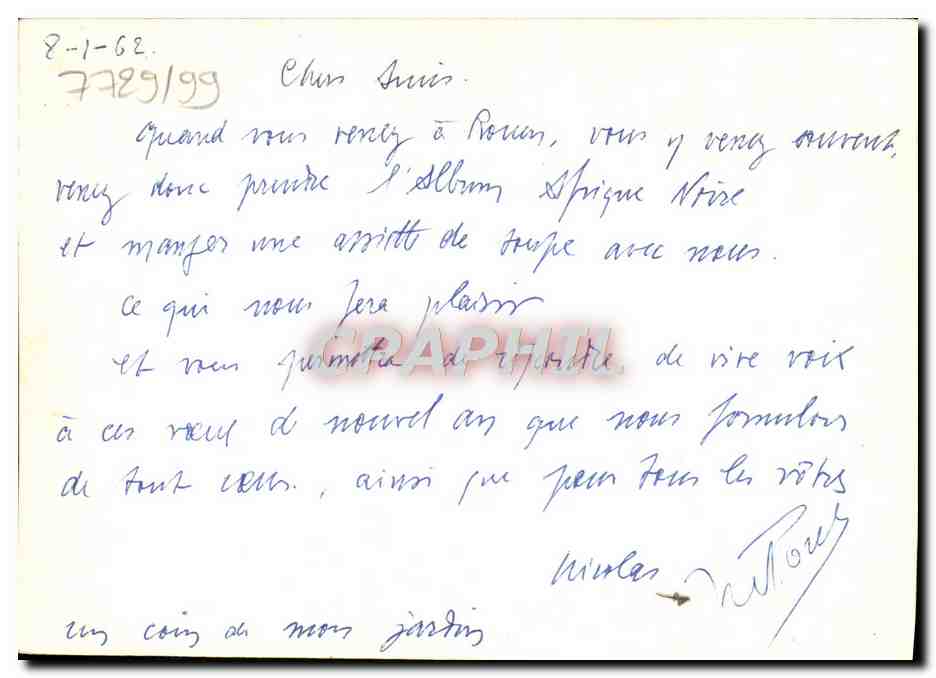 8-1-62.
7729/99
Chers Amis.
Quand vous venez à Rouen, vous y venez souvent,
venez donc prendre l'Album Afrique Noire
et manger une assiette de soupe avec nous.
ce qui nous fera plaisir
et vous permettra de répondre, de vive voix
à ces vœux de nouvel an que nous formulons
de tout cœur, ainsi que pour tous les vôtres
Nicolas
un coin de mon jardin
CRAPHTI